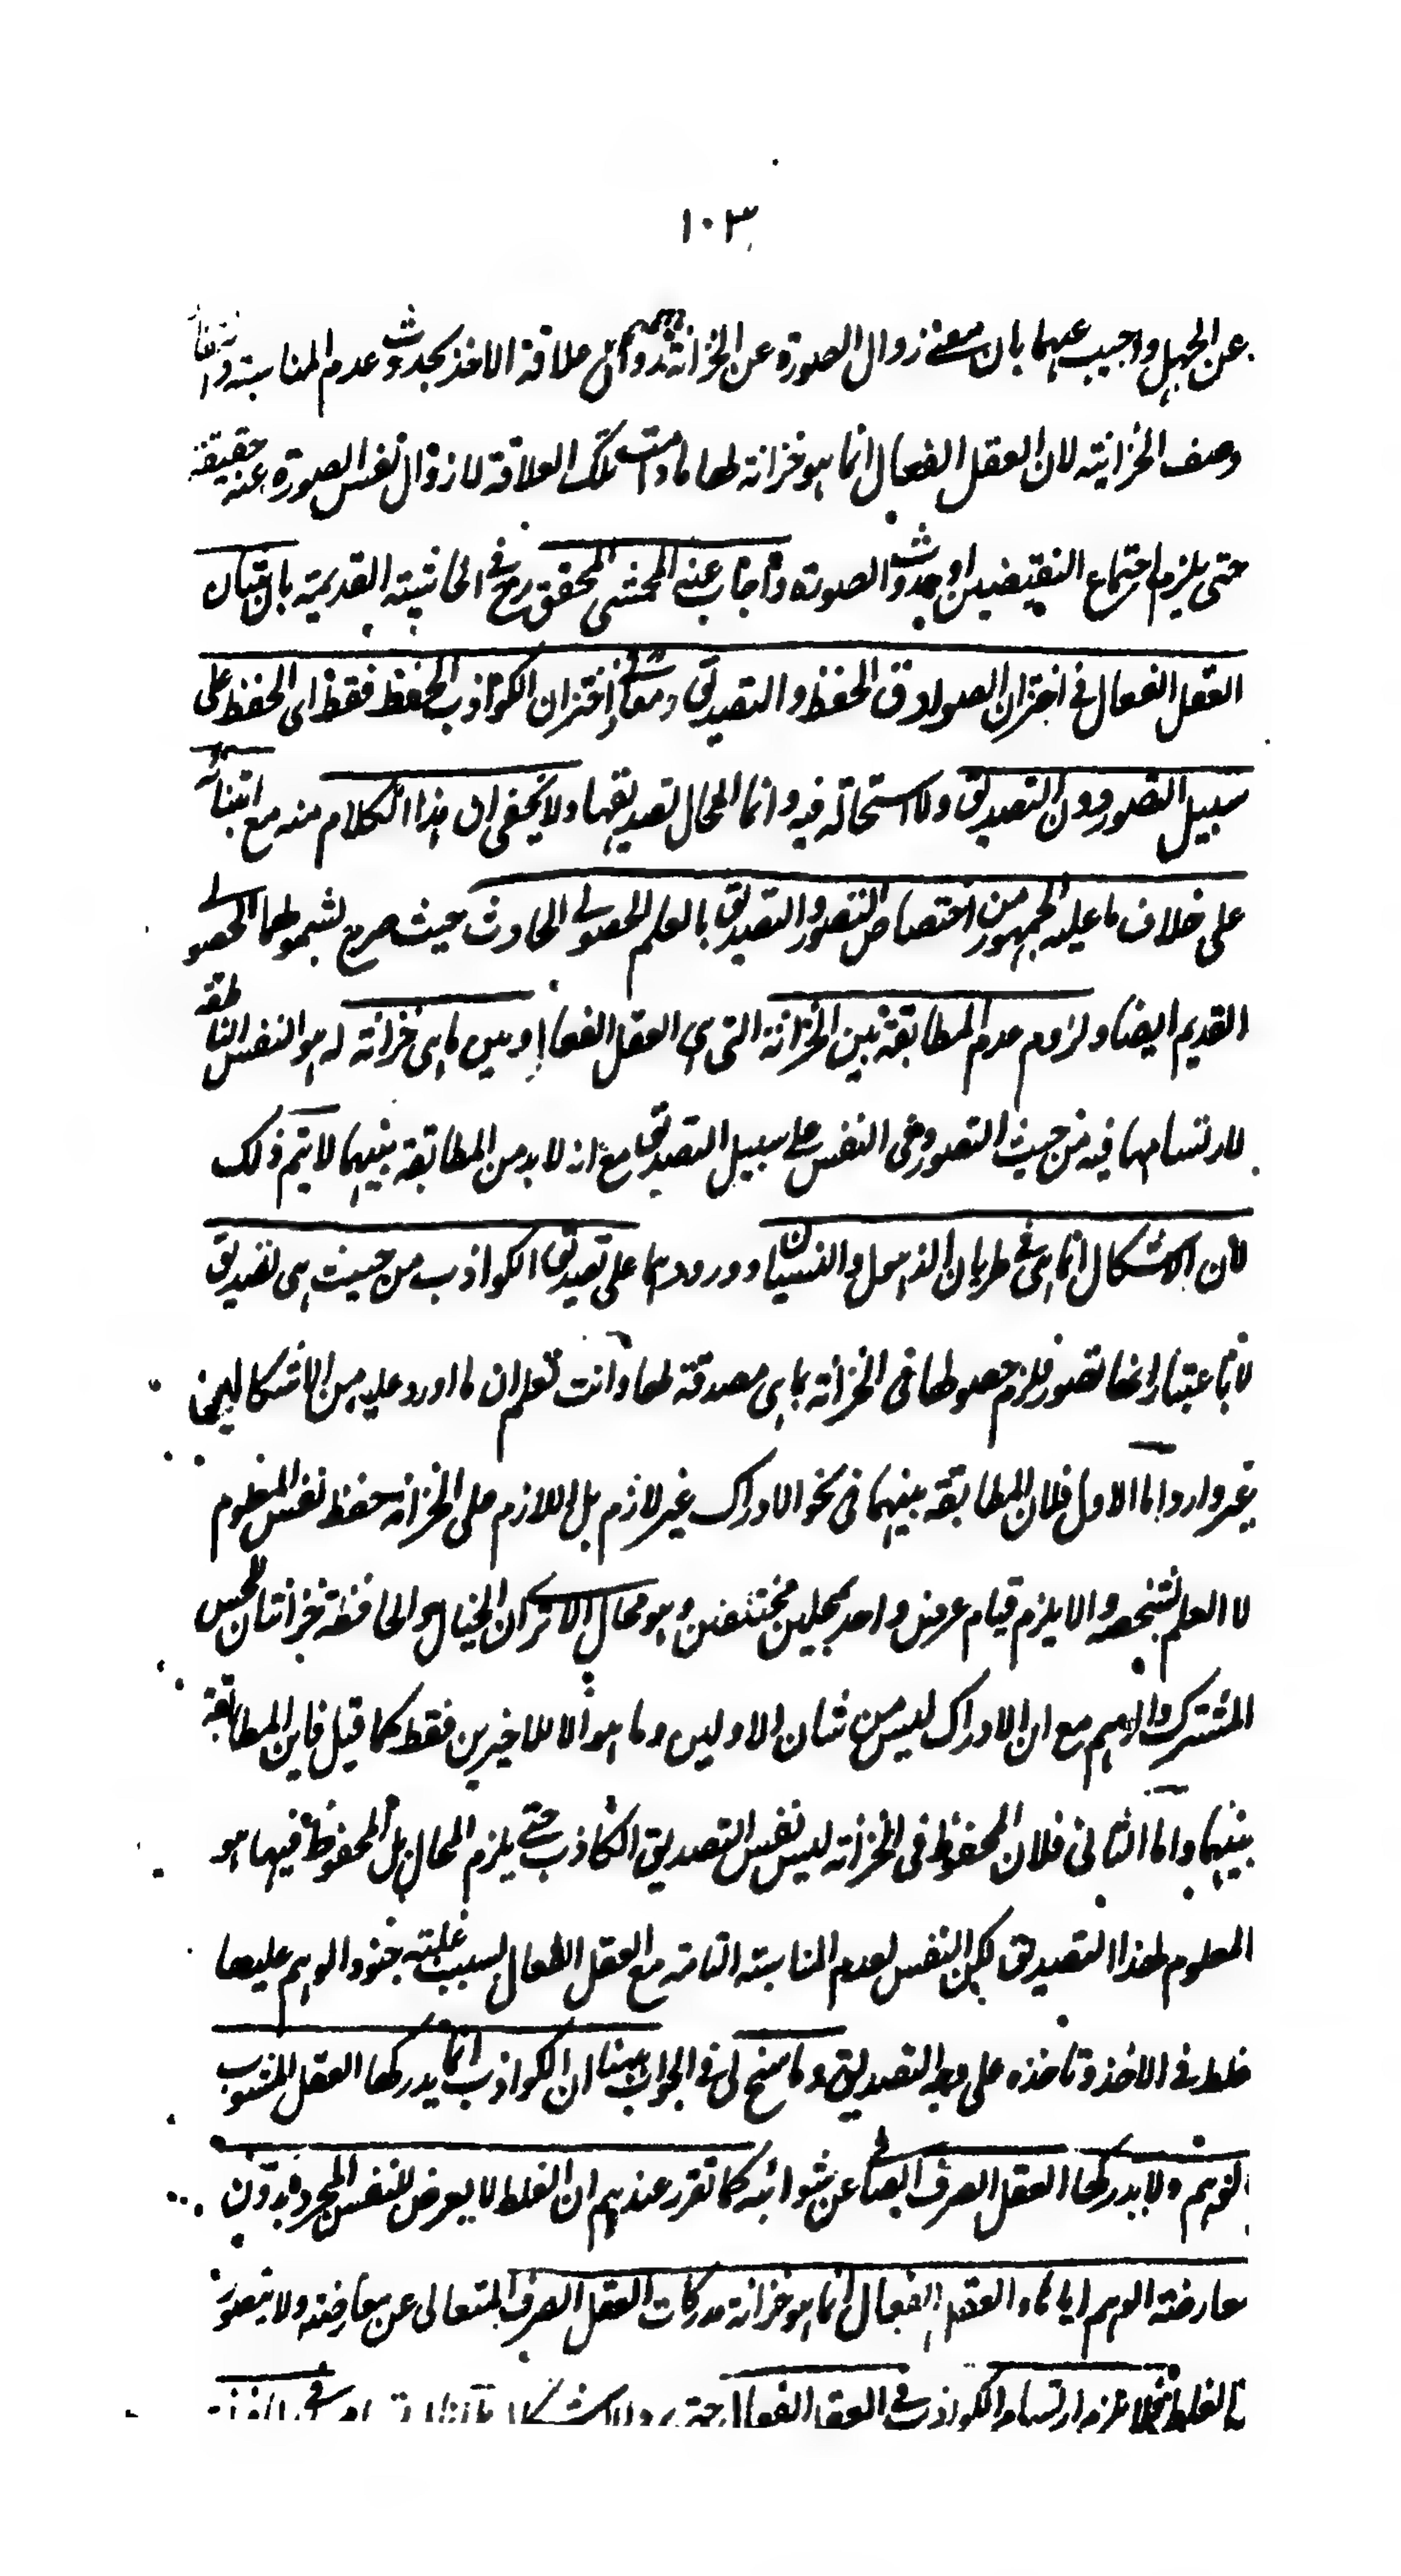 ١٠٣
عن الجهل واجيب عنهما بان معنى زوال الصورة عن الخزانة زوال علاقة الاخذ بحدوث عدم المناسبة و
وصف الخزانية لان العقل الفعال انما هو خزانة لها مادامت تلك العلاقة لا زوال نفس الصورة عنه حقيقة
حتى يلزم اجتماع النقيضين او حدوث الصورة واجاب عنه المحشى المحقق رح فى الحاشية القديمة بان شان
العقل الفعال فى اختزان الصوادق الحفظ والتصديق ومعا وفى اختزان الكواذب الحفظ فقط اى الحفظ على
سبيل التصور دون التصديق ولا استحالة فيه وانما المحال تصديقها ولا يخفى ان هذا الكلام منه مع ابتنائه
على خلاف ما عليه الجمهور من اختصاص التصور والتصديق بالعلم الحصولى الحادث حيث صرح بشمولهما الحصولى
القديم ايضا ولزوم عدم المطابقة بين الخزانة التى هى العقل الفعال وبين ما هى خزانة له هو النفس الناطقة
لارتسامها فيه من حيث التصور وفى النفس على سبيل التصديق مع انه لا بد من المطابقة بينهما لا يتم ذلك
لان الاشكال انما هى فى طريان الذهول والنسيان وورودهما على تصديق الكواذب من حيث هى تصديق
لا باعتبار انها تصور فلزم حصولها فى الخزانة بما هى مصدقة لها وانت تعلم ان ما اورد عليه من الاشكالين
غير وارد اما الاول فلان المطابقة بينهما فى نحو الادراك غير لازم بل اللازم على الخزانة حفظ نفس المعلوم
لا العلم بشخصه والا يلزم قيام عرض واحد بمحلين مختلفين وهو محال الا ترى ان الخيال والحافظة خزانتان للحس
المشترك والوهم مع ان الادراك ليس من شان الاولين وما هو الا للاخيرين فقط كما قيل فاين المطابقة
بينهما واما الثانى فلان المحفوظ فى الخزانة ليس نفس التصديق الكاذب حتى يلزم المحال بل المحفوظ فيها هو
المعلوم لهذا التصديق لكن النفس لعدم المناسبة التامة مع العقل الفعال بسبب غلبته جنود الوهم عليها
غلط فى الاخذ وتاخذه على وجه التصديق وما سنح لى فى الجواب ههنا ان الكواذب انما يدركها العقل المشوب
بالوهم ولا يدركها العقل الصرف الصافى عن شوائبه كما تقرر عندهم ان الغلط لا يعرض للنفس المجردة بدون
معارضة الوهم اياها والعقل الفعال انما هو خزانة مدركات العقل الصرف المتعالى عن معارضته ولا يتصور
الغلط فلا يلزم ارتسام الكواذب فى العقل الفعال حتى يرد الاشكال